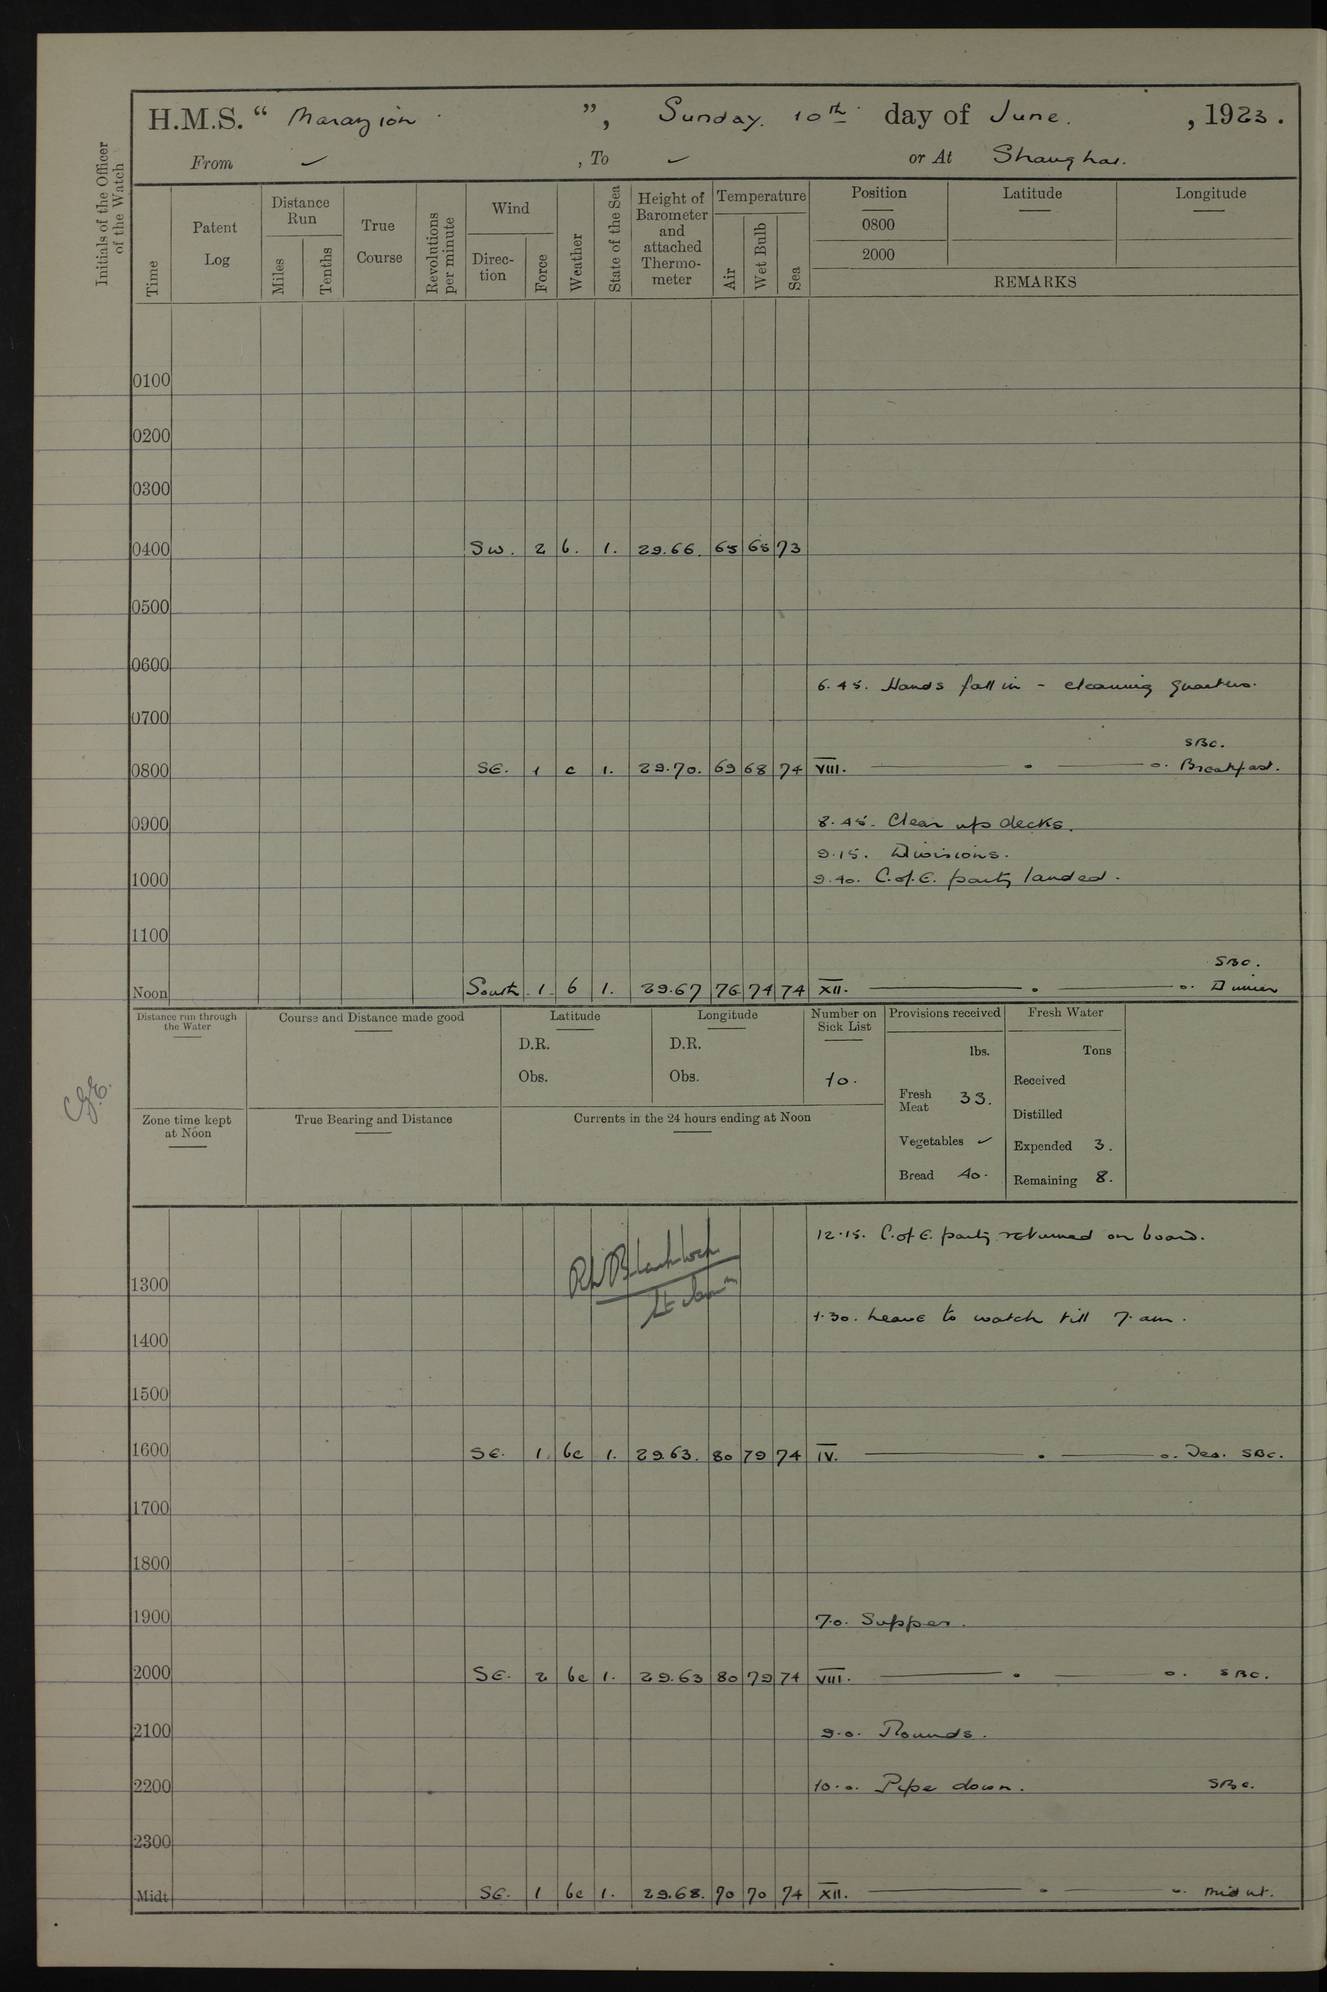 H.M.S. “ Marazion ”, Sunday. 10th day of June. , 1923.
From ✓ , To ✓ or At Shanghai.
Initials of the Officer of the Watch
Time
Patent Log
Distance Run
Miles
Tenths
True Course
Revolutions per minute
Wind
Direc-tion
Force
Weather
State of the Sea
Height of Barometer and attached Thermo-meter
Temperature
Air
Wet Bulb
Sea
Position Latitude Longitude
0800
2000
REMARKS
0100
0200
0300
0400 SW. 2 b. 1. 29.66. 65 65 73
0500
0600
6.45. Hands fall in – cleaning quarters.
0700
SBC.
0800 SE. 1 c 1. 29.70. 69 68 74 VIII. Breakfast.
0900 8.45. Clear up decks.
9.15. Divisions.
1000 9.40. C. of. E. party landed.
1100
SBC.
Noon South. 1. b 1. 29.67 76 74 74 XII. Dinner
Distance run through the Water
Course and Distance made good
Latitude
D.R.
Obs.
Longitude
D.R.
Obs.
Number on Sick List
10.
Provisions received
lbs.
Fresh Meat 33.
Vegetables ✓
Bread 40.
Fresh Water
Tons
Received
Distilled
Expended 3.
Remaining 8.
Zone time kept at Noon
True Bearing and Distance
Currents in the 24 hours ending at Noon
12.15. C. of E. party returned on board.
1300
1.30. Leave to watch till 7. am.
1400
1500
1600 SE. 1. bc 1. 29.63. 80 79 74 IV. SBC.
1700
1800
1900 7.0. Supper.
2000 SE. 2 bc 1. 29.63 80 79 74 VIII. SBC.
2100 9.0. Rounds.
2200 10.0. Pipe down. SBC.
2300
Midt SE. 1 bc 1. 29.68. 70 70 74 XII.